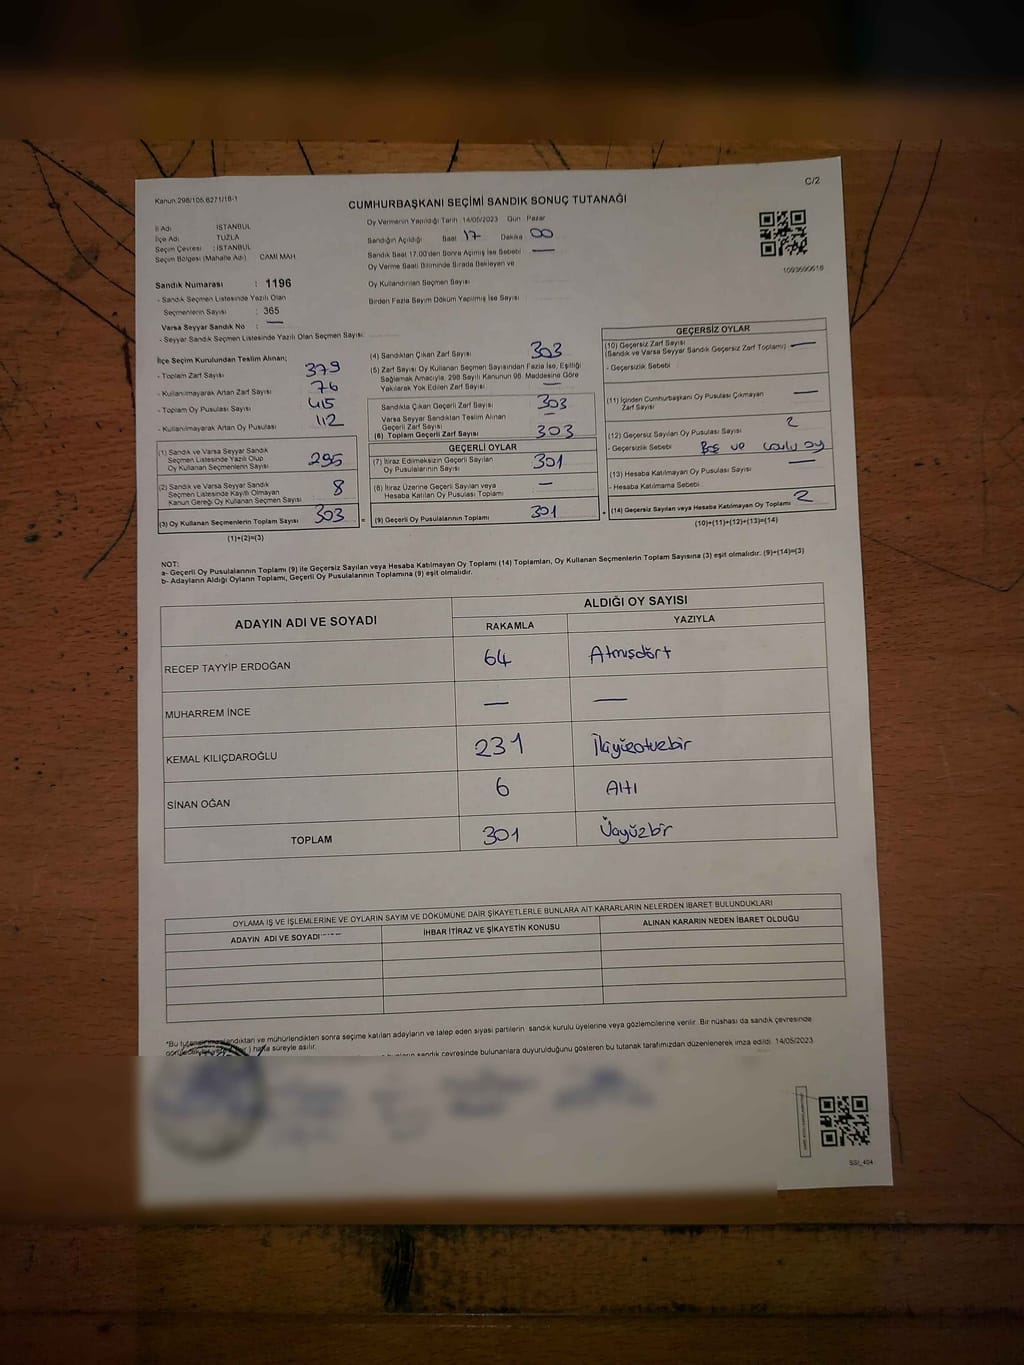 C/2
Kanun 298/105.6271/18-1
CUMHURBAŞKANI SEÇİMİ SANDIK SONUÇ TUTANAĞI
İl Adı : İSTANBUL
İlçe Adı : TUZLA
Seçim Çevresi : İSTANBUL
Seçim Bölgesi (Mahalle Adı) CAMİ MAH
Oy Vermenin Yapıldığı Tarih 14/05/2023 Gün Pazar
Sandığın Açıldığı Saat 17 Dakika 00
Sandık Saat 17:00'den Sonra Açılmış İse Sebebi —
Oy Verme Saati Bitiminde Sırada Bekleyen ve
Oy Kullandırılan Seçmen Sayısı
Birden Fazla Sayım Döküm Yapılmış İse Sayısı
1093590616
Sandık Numarası : 1196
- Sandık Seçmen Listesinde Yazılı Olan
Seçmenlerin Sayısı : 365
Varsa Seyyar Sandık No : —
- Seyyar Sandık Seçmen Listesinde Yazılı Olan Seçmen Sayısı:
İlçe Seçim Kurulundan Teslim Alınan;
- Toplam Zarf Sayısı 379
- Kullanılmayarak Artan Zarf Sayısı 76
- Toplam Oy Pusulası Sayısı 415
- Kullanılmayarak Artan Oy Pusulası 112
(1) Sandık ve Varsa Seyyar Sandık
Seçmen Listesinde Yazılı Olup
Oy Kullanan Seçmenlerin Sayısı 295
(2) Sandık ve Varsa Seyyar Sandık
Seçmen Listesinde Kayıtlı Olmayan
Kanun Gereği Oy Kullanan Seçmen Sayısı 8
(3) Oy Kullanan Seçmenlerin Toplam Sayısı 303
(1)+(2)=(3)
(4) Sandıktan Çıkan Zarf Sayısı 303
(5) Zarf Sayısı Oy Kullanan Seçmen Sayısından Fazla İse, Eşitliği
Sağlamak Amacıyla, 298 Sayılı Kanunun 98. Maddesine Göre
Yakılarak Yok Edilen Zarf Sayısı —
Sandıkta Çıkan Geçerli Zarf Sayısı 303
Varsa Seyyar Sandıktan Teslim Alınan
Geçerli Zarf Sayısı —
(6) Toplam Geçerli Zarf Sayısı 303
GEÇERLİ OYLAR
(7) İtiraz Edilmeksizin Geçerli Sayılan
Oy Pusulalarının Sayısı 301
(8) İtiraz Üzerine Geçerli Sayılan veya
Hesaba Katılan Oy Pusulası Toplamı —
= (9) Geçerli Oy Pusulalarının Toplamı 301
GEÇERSİZ OYLAR
(10) Geçersiz Zarf Sayısı —
(Sandık ve Varsa Seyyar Sandık Geçersiz Zarf Toplamı)
- Geçersizlik Sebebi
(11) İçinden Cumhurbaşkanı Oy Pusulası Çıkmayan
Zarf Sayısı —
(12) Geçersiz Sayılan Oy Pusulası Sayısı 2
- Geçersizlik Sebebi Boş ve
(13) Hesaba Katılmayan Oy Pusulası Sayısı —
- Hesaba Katılmama Sebebi
+ (14) Geçersiz Sayılan veya Hesaba Katılmayan Oy Toplamı 2
(10)+(11)+(12)+(13)=(14)
NOT:
a- Geçerli Oy Pusulalarının Toplamı (9) ile Geçersiz Sayılan veya Hesaba Katılmayan Oy Toplamı (14) Toplamları, Oy Kullanan Seçmenlerin Toplam Sayısına (3) eşit olmalıdır. (9)+(14)=(3)
b- Adayların Aldığı Oyların Toplamı, Geçerli Oy Pusulalarının Toplamına (9) eşit olmalıdır.
ADAYIN ADI VE SOYADI
ALDIĞI OY SAYISI
RAKAMLA YAZIYLA
RECEP TAYYİP ERDOĞAN 64 Atmışdört
MUHARREM İNCE — —
KEMAL KILIÇDAROĞLU 231 İkiyüzotuzbir
SİNAN OĞAN 6 Altı
TOPLAM 301 Üçyüzbir
OYLAMA İŞ VE İŞLEMLERİNE VE OYLARIN SAYIM VE DÖKÜMÜNE DAİR ŞİKAYETLERLE BUNLARA AİT KARARLARIN NELERDEN İBARET BULUNDUKLARI
ADAYIN ADI VE SOYADI İHBAR İTİRAZ VE ŞİKAYETİN KONUSU ALINAN KARARIN NEDEN İBARET OLDUĞU
*Bu tutanak imzalandıktan ve mühürlendikten sonra seçime katılan adayların ve talep eden siyasi partilerin sandık kurulu üyelerine veya gözlemcilerine verilir. Bir nüshası da sandık çevresinde
hafta süreyle asılır.
sandık çevresinde bulunanlara duyurulduğunu gösteren bu tutanak tarafımızdan düzenlenerek imza edildi. 14/05/2023
SSI_404